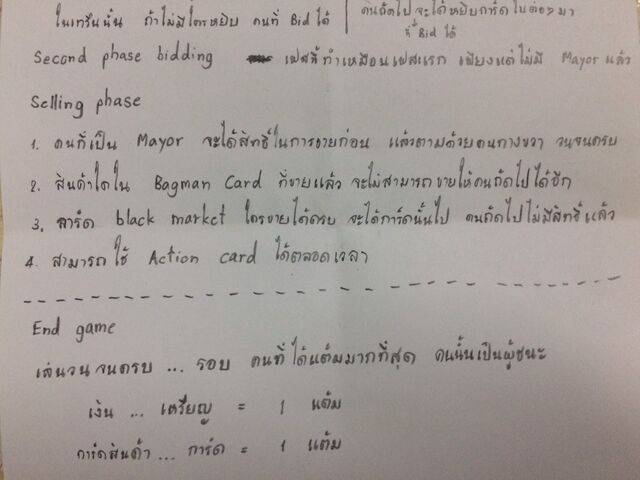 ในเทรินนั้น ถ้าไม่มีใครหยิบ คนที่ Bid ได้
คนถัดไปจะได้หยิบการ์ดใบต่อๆมา
ที่ Bid ได้
Second phase bidding เฟสนี้ทำเหมือนเฟสแรก เพียงแต่ไม่มี Mayor แล้ว
Selling phase
1. คนที่เป็น Mayor จะได้สิทธิ์ในการขายก่อน แล้วตามด้วยคนทางขวา วนจนครบ
2. สินค้าใดใน Bagman Card ที่ขายแล้ว จะไม่สามารถขายให้คนถัดไปได้อีก
3. การ์ด black market ใครขายได้ครบ จะได้การ์ดนั้นไป คนถัดไปไม่มีสิทธิ์แล้ว
4. สามารถใช้ Action card ได้ตลอดเวลา
End game
เล่นวนจนครบ ... รอบ คนที่ได้แต้มมากที่สุด คนนั้นเป็นผู้ชนะ
เงิน ... เหรียญ = 1 แต้ม
การ์ดสินค้า ... การ์ด = 1 แต้ม